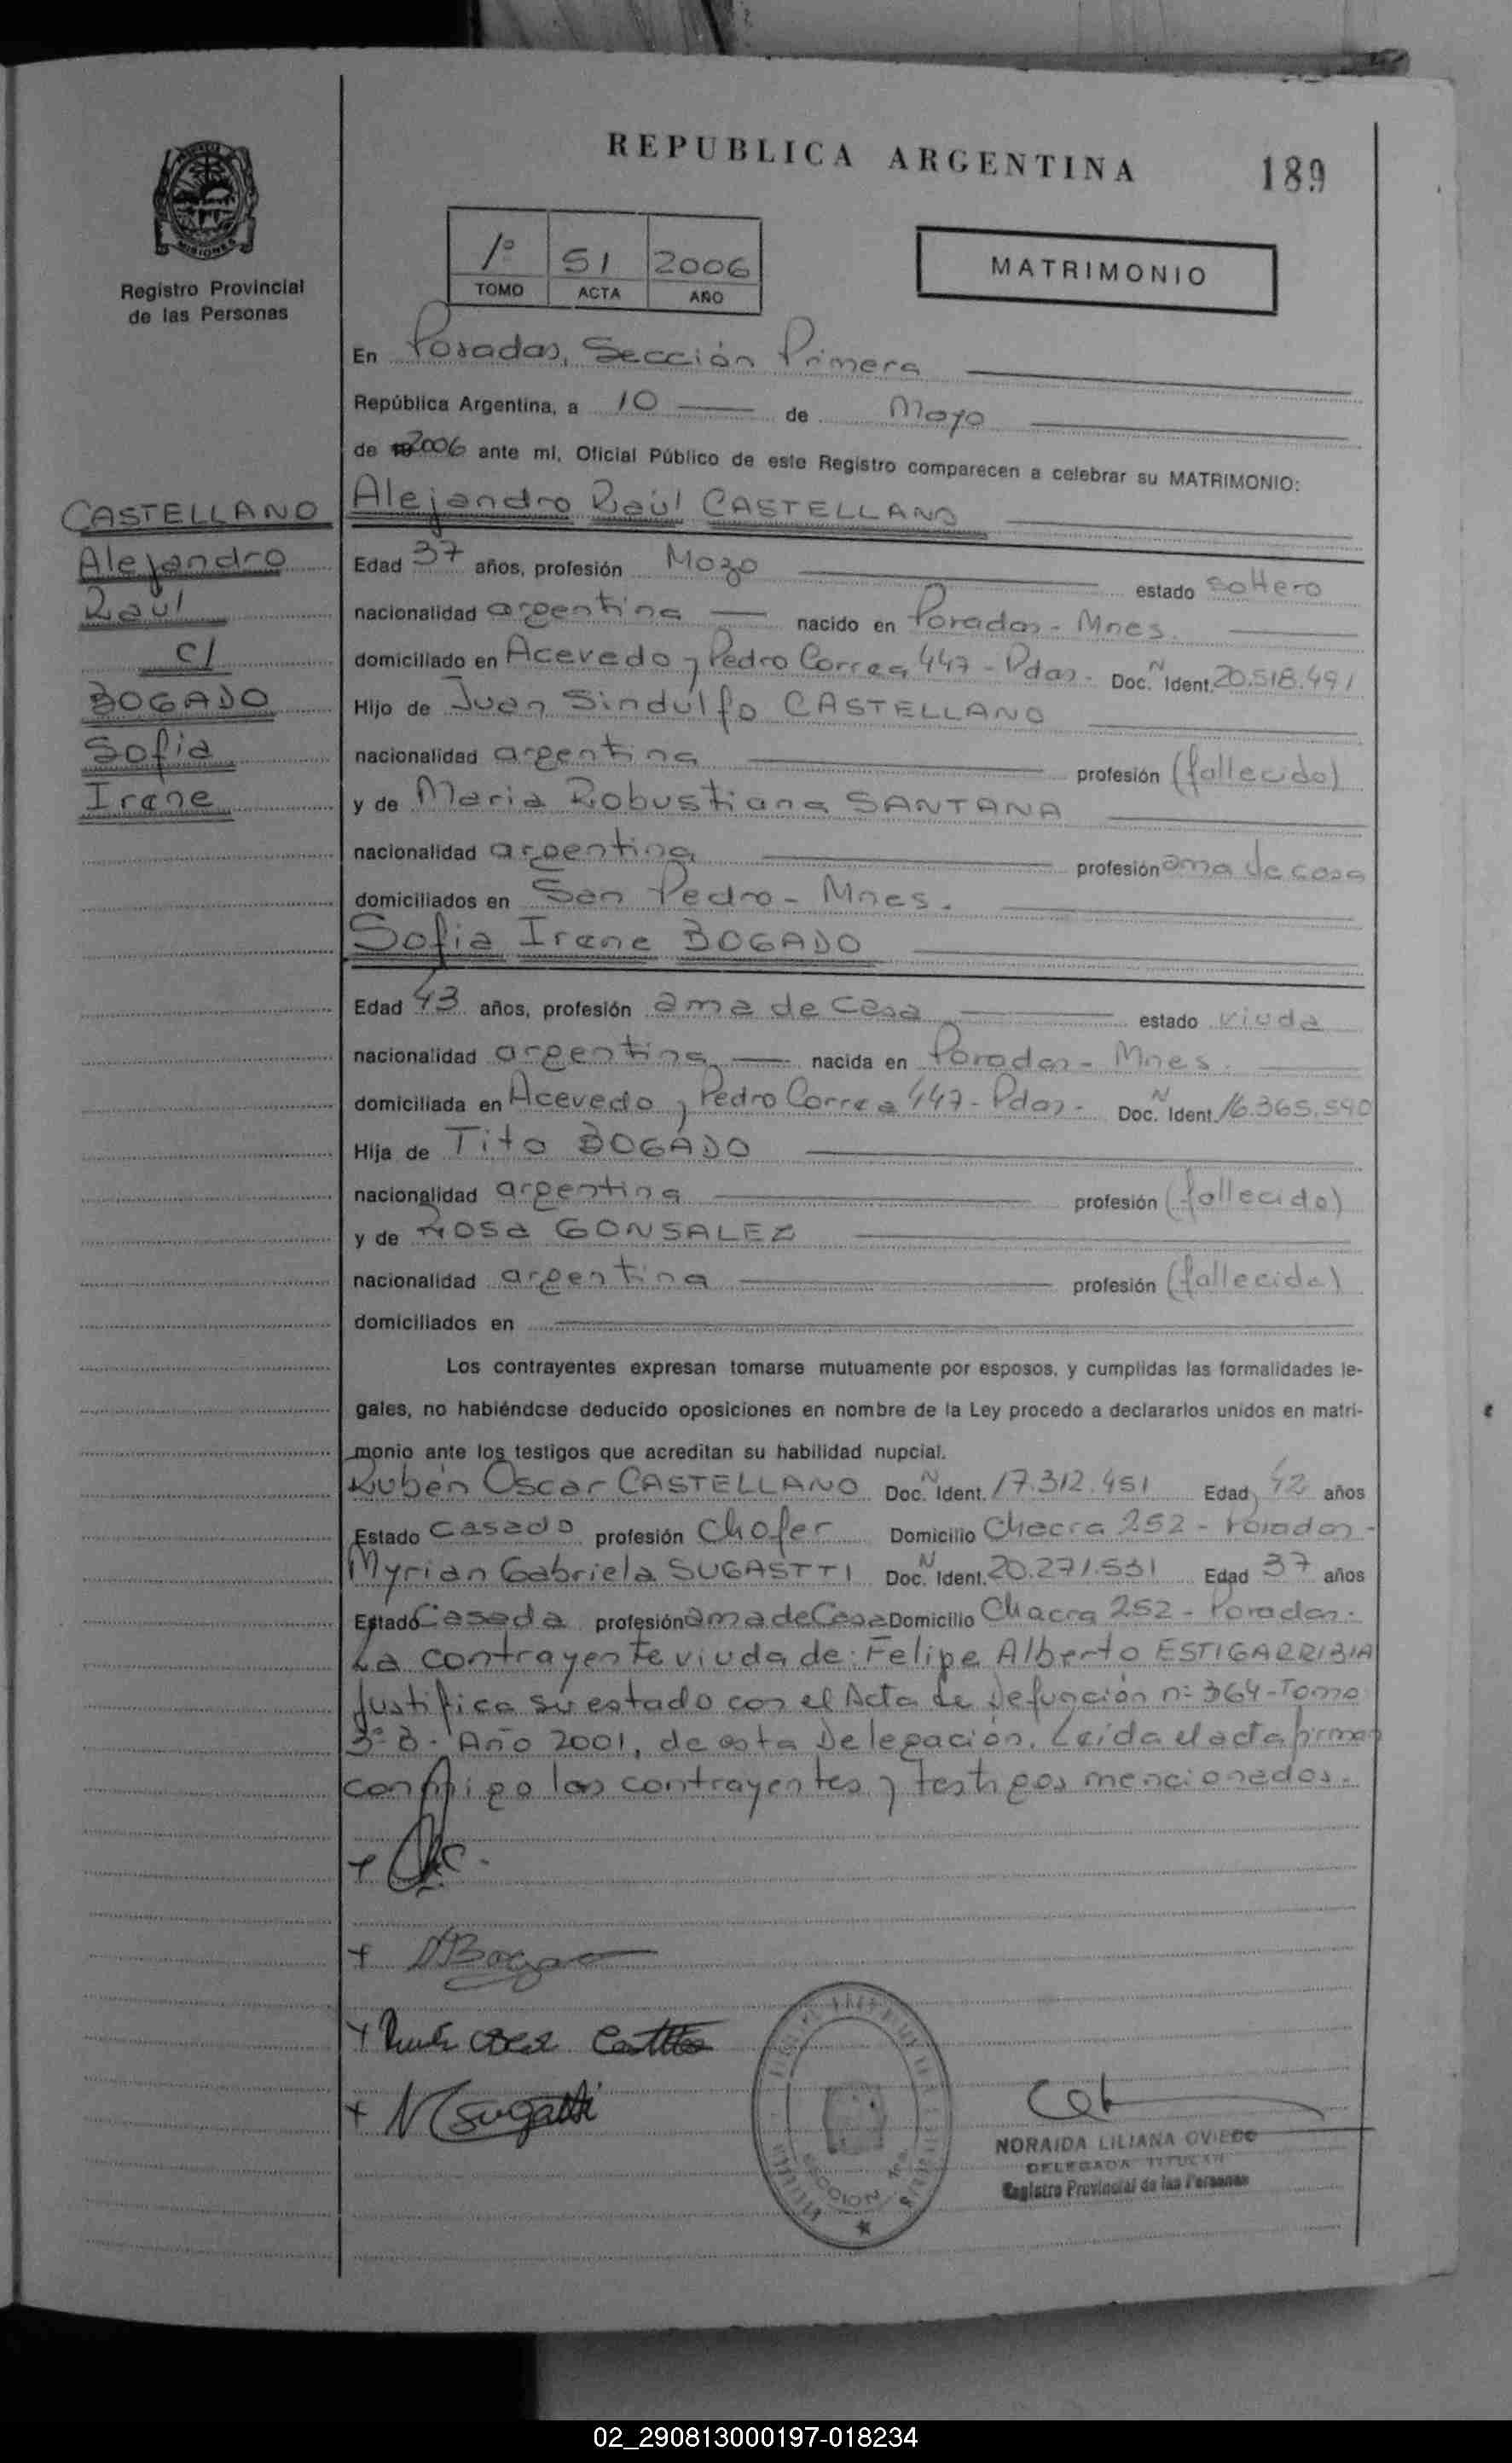 REPUBLICA ARGENTINA
189
MISIONES
Registro Provincial
de las Personas
1º 51 2006
TOMO ACTA AÑO
MATRIMONIO
En Posadas, Sección Primera
República Argentina, a 10 de Mayo
de 2006 ante mí, Oficial Público de este Registro comparecen a celebrar su MATRIMONIO:
CASTELLANO
Alejandro
Raúl
c/
BOGADO
Sofia
Irene
Alejandro Raúl CASTELLANO
Edad 37 años, profesión Mozo estado soltero
nacionalidad argentina nacido en Posadas - Mnes.
domiciliado en Acevedo y Pedro Correa 447 - Pdas. Doc. N Ident. 20.518.491
Hijo de Juan Sindulfo CASTELLANO
nacionalidad argentina profesión (fallecido)
y de Maria Robustiana SANTANA
nacionalidad argentina profesión ama de casa
domiciliados en San Pedro - Mnes.
Sofia Irene BOGADO
Edad 43 años, profesión ama de casa estado viuda
nacionalidad argentina nacida en Posadas - Mnes.
domiciliada en Acevedo y Pedro Correa 447 - Pdas. Doc. N Ident. 16.365.590
Hija de Tito BOGADO
nacionalidad argentina profesión (fallecido)
y de Rosa GONSALEZ
nacionalidad argentina profesión (fallecida)
domiciliados en
Los contrayentes expresan tomarse mutuamente por esposos, y cumplidas las formalidades le-
gales, no habiéndose deducido oposiciones en nombre de la Ley procedo a declararlos unidos en matri-
monio ante los testigos que acreditan su habilidad nupcial.
Rubén Oscar CASTELLANO Doc. N Ident. 17.312.451 Edad 42 años
Estado casado profesión Chofer Domicilio Chacra 252 - Posadas -
Myrian Gabriela SUGASTTI Doc. N Ident. 20.271.531 Edad 37 años
Estado Casada profesión ama de Casa Domicilio Chacra 252 - Posadas.
La contrayente viuda de: Felipe Alberto ESTIGARRIBIA
Justifica su estado con el Acta de Defunción nº 364 - Tomo
3º B - Año 2001, de esta Delegación. Leída el acta firman
conmigo los contrayentes y testigos mencionados.
NORAIDA LILIANA OVIEDO
DELEGADA TITULAR
Registro Provincial de las Personas
02_290813000197-018234